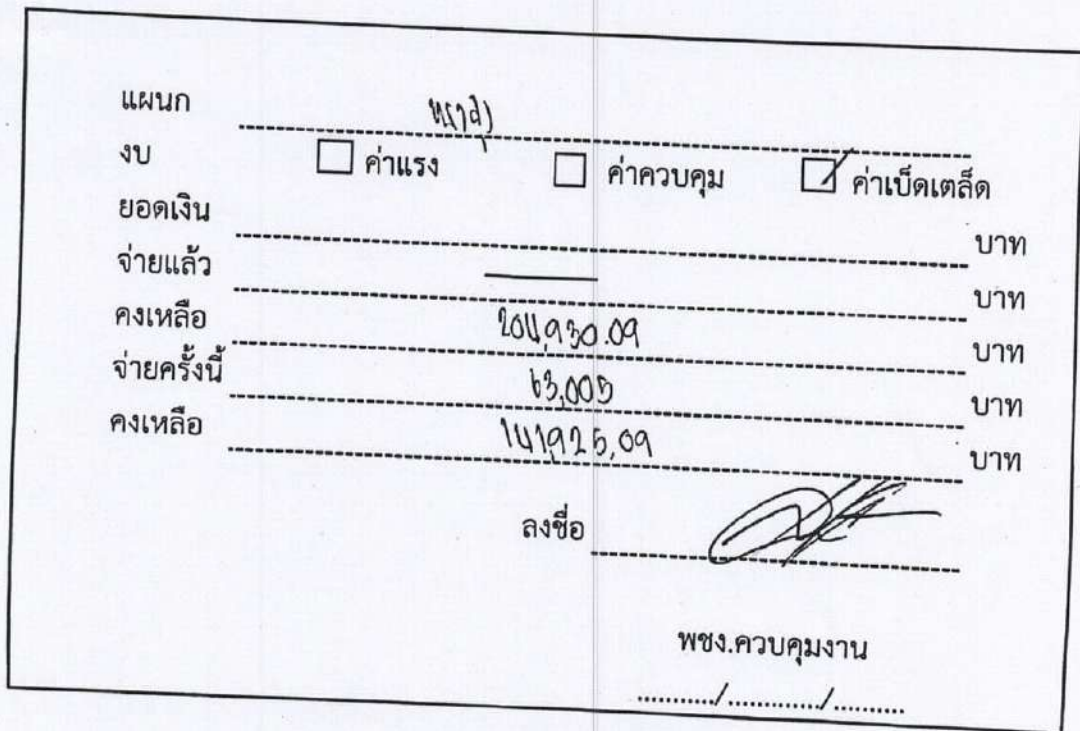 แผนก
งบ ☐ ค่าแรง ☐ ค่าควบคุม ☑ ค่าเบ็ดเตล็ด
ยอดเงิน บาท
จ่ายแล้ว บาท
คงเหลือ 204,930.09 บาท
จ่ายครั้งนี้ 63,005 บาท
คงเหลือ 141,925.09 บาท
ลงชื่อ
พชง.ควบคุมงาน
........../............./..........